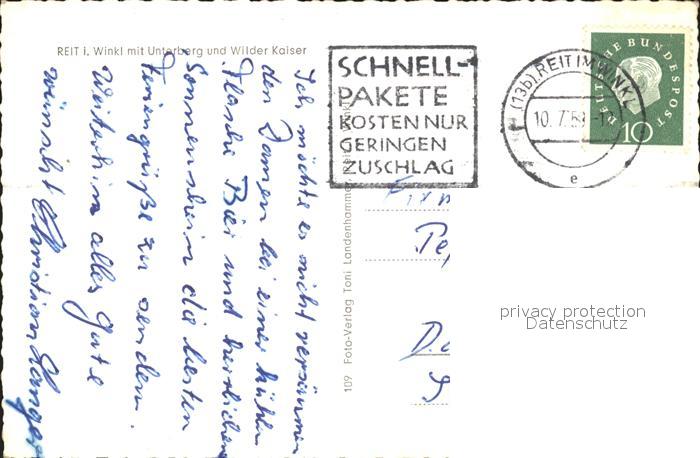 REIT i. Winkl mit Unterberg und Wilder Kaiser
Ich möchte es nicht versäumen
den Damen bei einer kühlen
Flasche Bier und herrlichen
Sonnenschein die besten
Feriengrüße zu senden.
Weiterhin alles Gute
wünscht Christian
109 Foto-Verlag Toni Landenhammer
SCHNELL-
PAKETE
KOSTEN NUR
GERINGEN
ZUSCHLAG
(13b) REIT IM WINKL
10. 7. 59
e
DEUTSCHE BUNDESPOST
10
privacy protection
Datenschutz